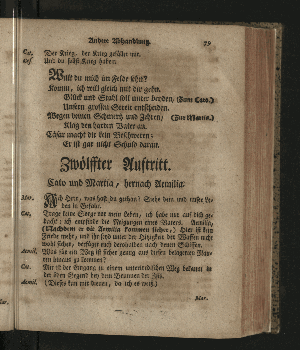 Andere Abhandlung. 79
Cat. Der Krieg, der Krieg gefället mir.
Cäs. Und du solst Krieg haben.
Wilst du mich im Felde sehn?
Komm, ich will gleich mit dir gehn.
Glück und Stahl soll unter beyden, (Zum Cato.)
Unsern grossen Streit entscheiden.
Wegen deinen Schmertz und Zehren, (Zur Martia.)
Klag den harten Vater an.
Cäsar macht dir kein Beschweren:
Er ist gar nicht Schuld daran.
Zwölffter Auftritt.
Cato und Martia, hernach Aemilia.
Mar. Ach Herr, was hast du gethan! Siehe dein und unser Le-
ben in Gefahr.
Cat. Trage keine Sorge vor mein Leben, ich habe nur auf dich ge-
dacht: ich empfinde die Neigungen eines Vaters. Aemilia,
(Nachdem er die Aemilia kommen siehet,) Hier ist kein
Friede mehr, und ihr seyd unter der Hitzigkeit der Waffen nicht
wohl sicher, verfüget euch derohalben nach denen Schiffen.
Aemil. Was für ein Weg ist sicher genug aus diesen belagerten Mau-
ren hinaus zu kommen?
Cat. Mir ist der Eingang zu einem unterirrdischen Weg bekannt in
der öden Gegend bey dem Brunnen der Isis.
Aemil. (Dieses kan mir dienen, da ich es weiß.)
Mar.